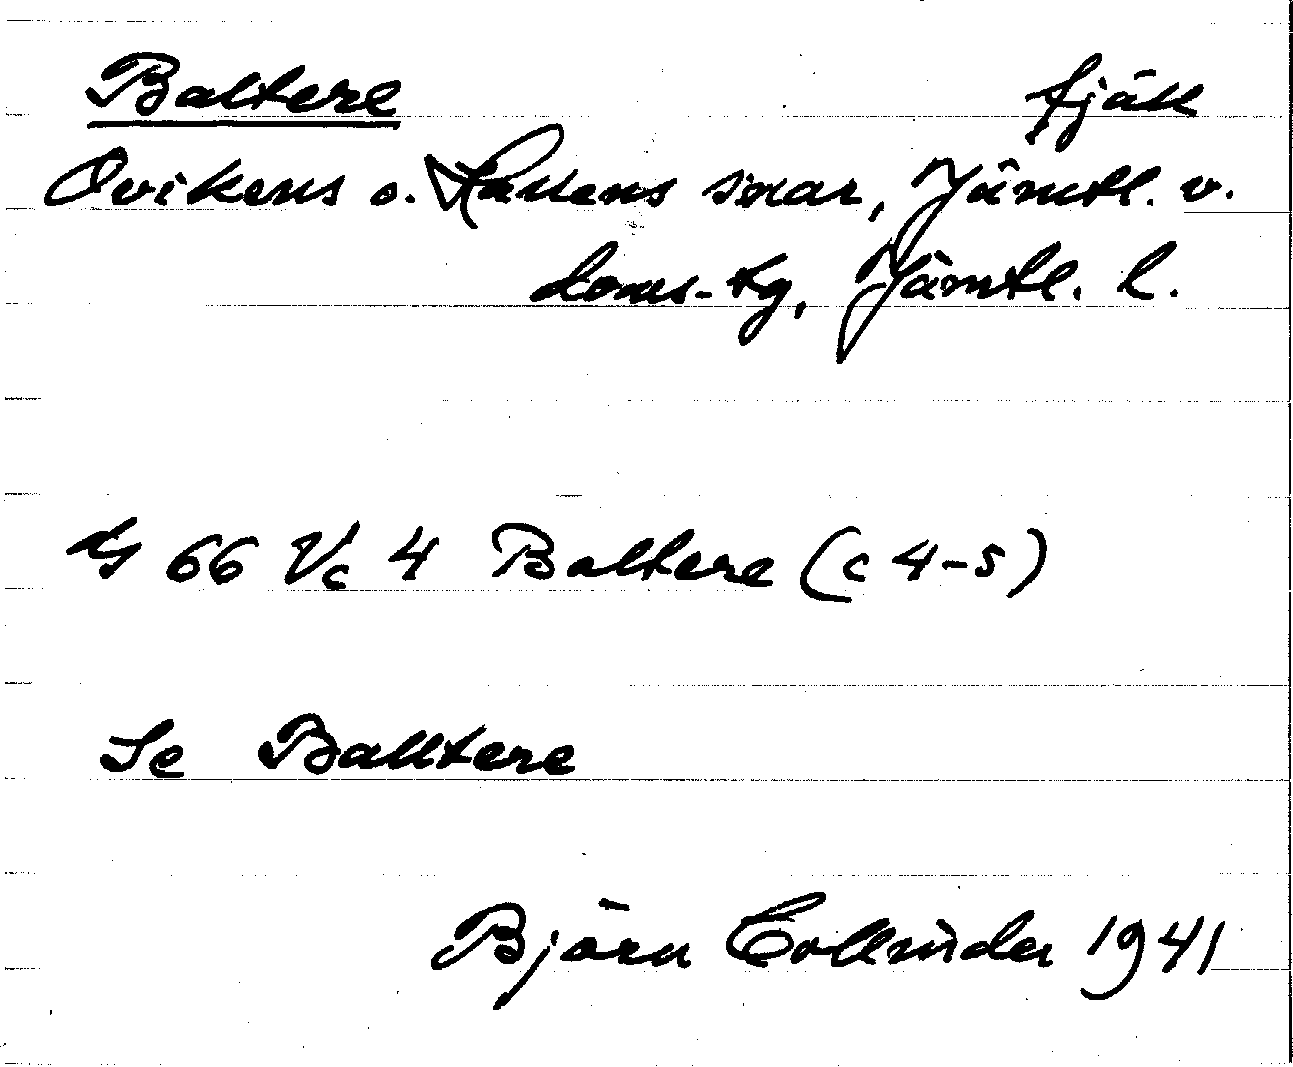 Baltere fjäll
Ovikens o. Hallens snar, Jämtl. v.
doms-tg, Jämtl. l.
gs 66 Vc 4 Baltere (c 4-5)
Se Balltere
Björn Collinder 1941